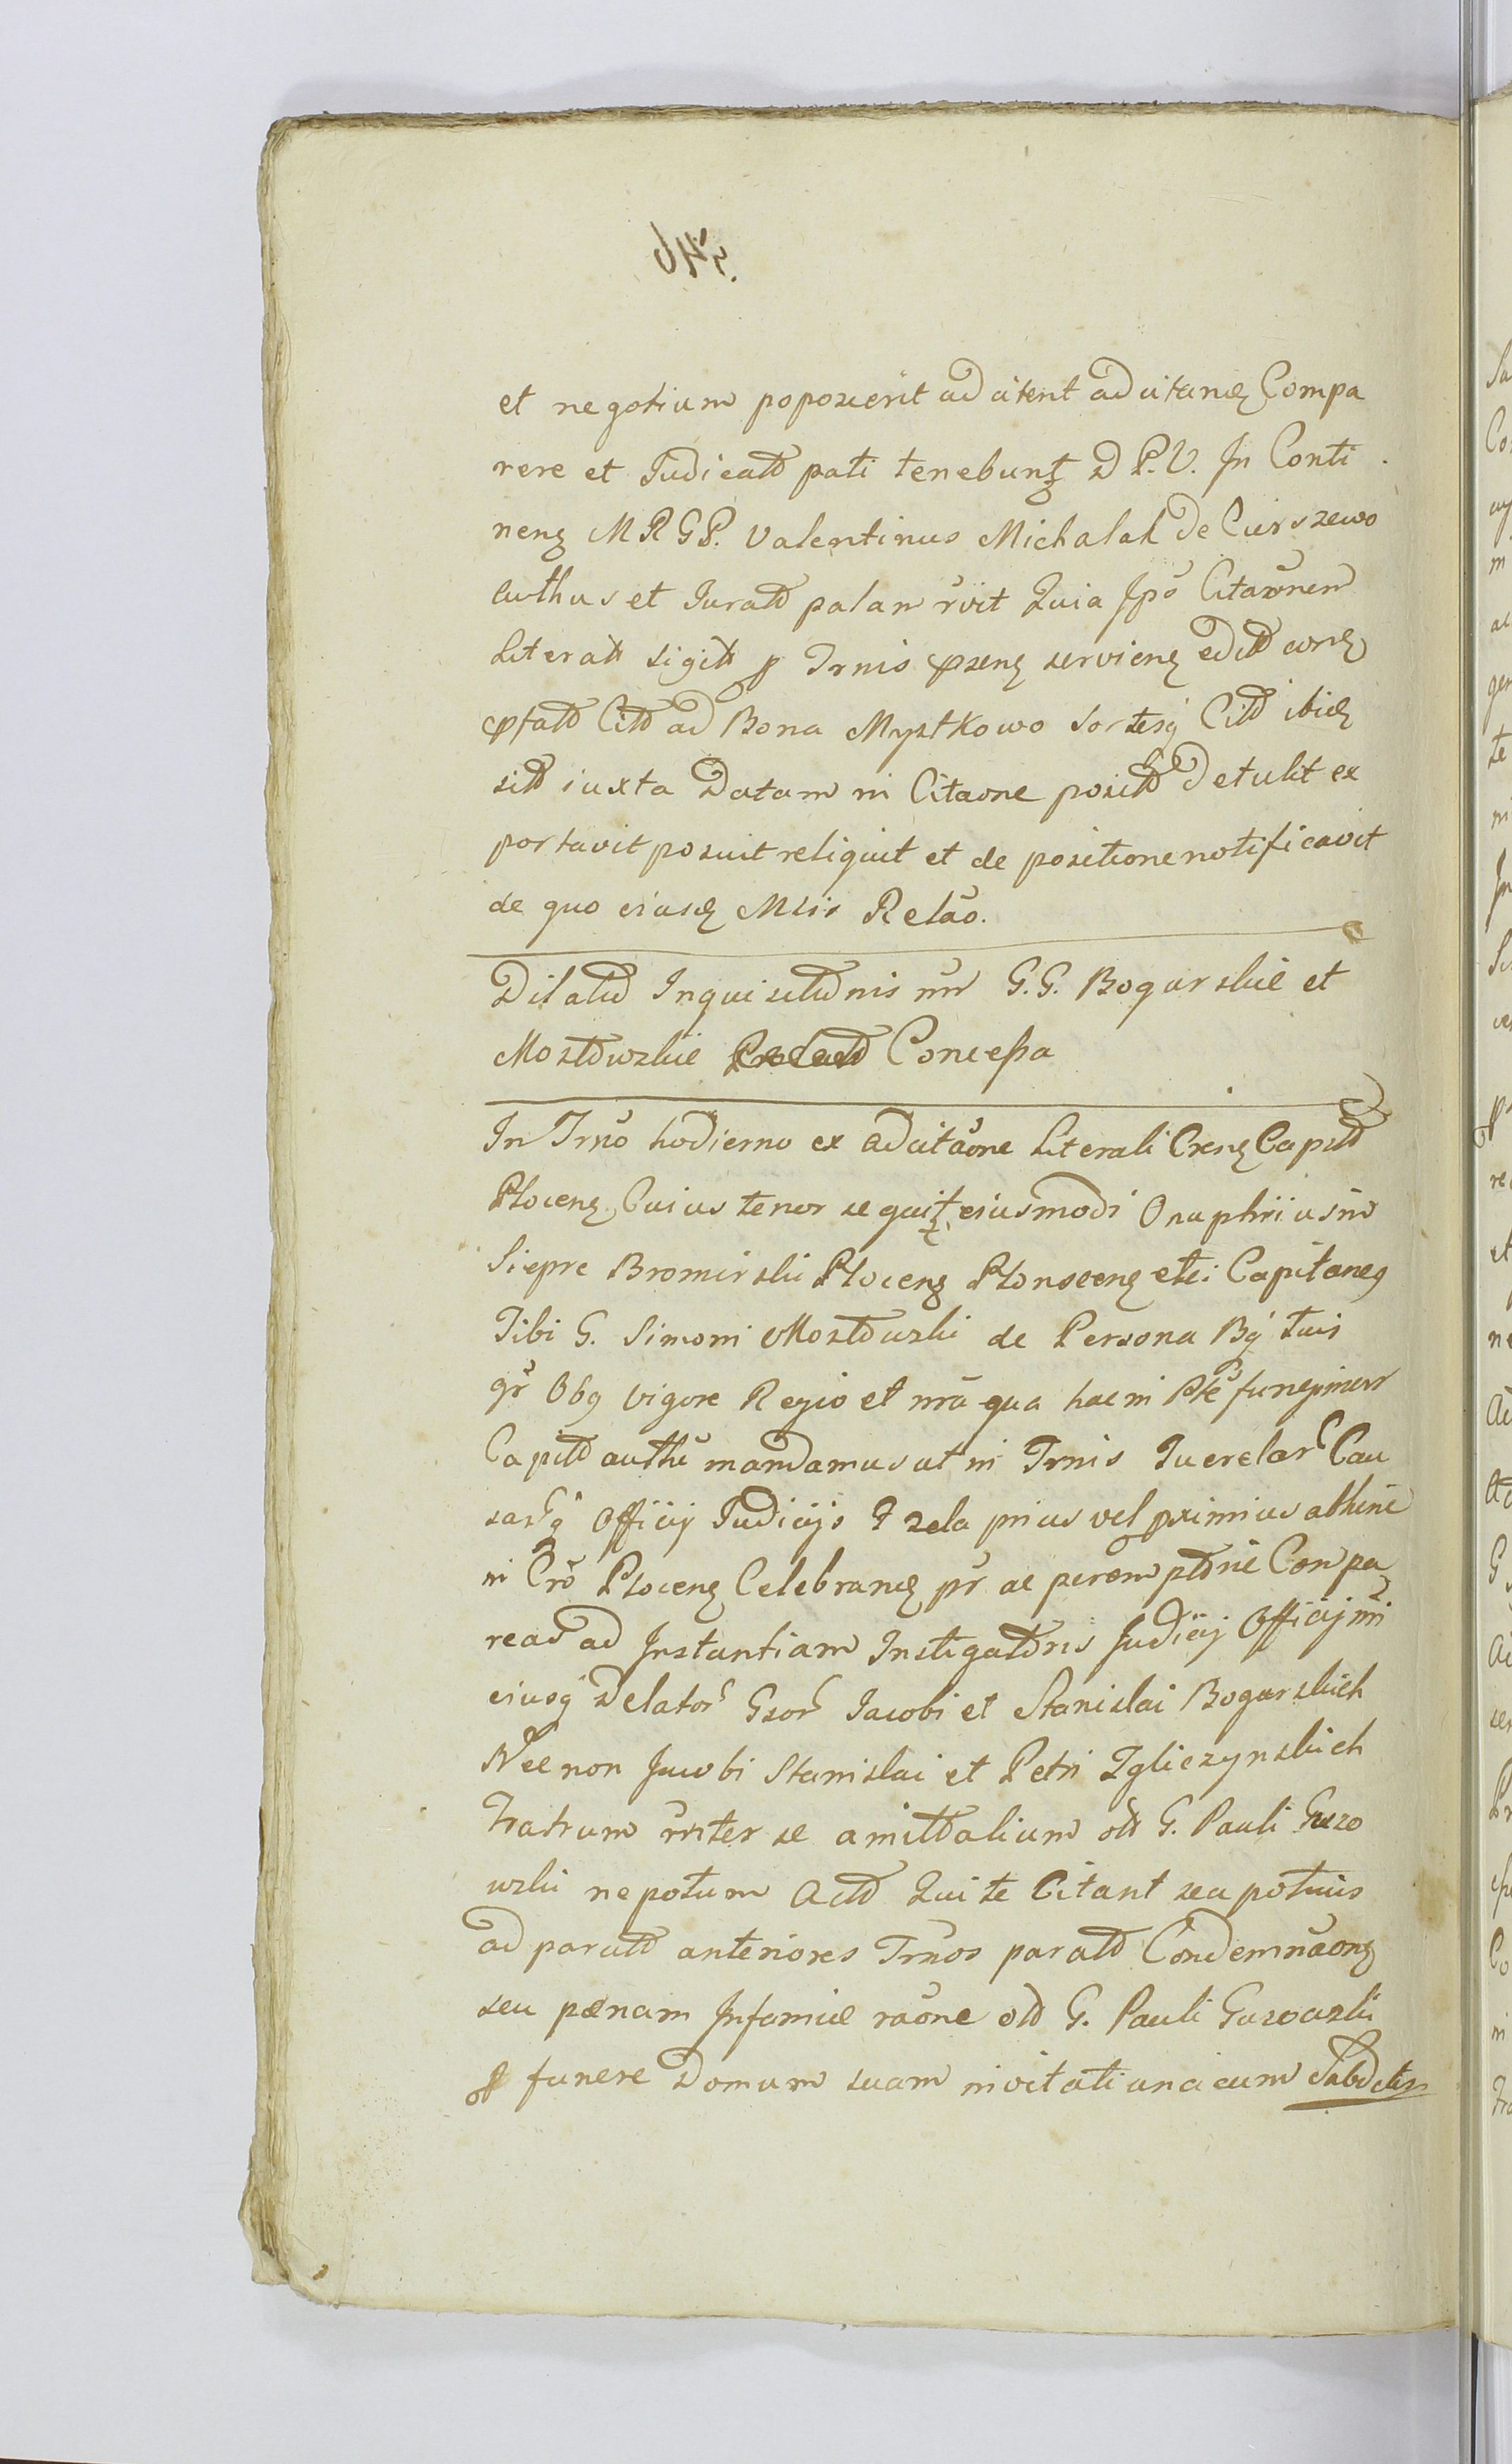 et negotium poposcerit ad citent ad citand Compa
rere et Judicatt pati tenebuntz D P. V. In Conti
nenz M R G P. Valentinus Michalak de Cierszewo
authus et Juratt palam rvit Quia Ipo Citaonem
Literatt sigitt p Trnis psenz servienz editt
pfatt Citt ad Bona Mystkowo Sortesq Citt ibid
sitt iuxta Datam in Citaone positt detulit ex
portavit posuit reliquit et de positione notificavit
de quo eiusd Mlis Relao.
Dilatio Inquisitionis nr G. G. Bogurskie et
Mosttowskie Concessa
In Trno hodierno ex adcitaone Literali Crensz Capitt
Plocenz Cuius tenor sequitz eiusmodi Onuphrius in
Siepre Bromirski Plocenz Plonscenz etc: Capitaneg
Tibi G. Simoni Mosttowski de Persona Bq tuis
gr Obq vigore Regio et nra qua hac in Pte fungimur
Capitt autthe mandamus ut in Trnis Querelar Cau
sarq Officij Judicijs
in Cro Plocenz Celebrand pr ac peremptorie Compa
reas ad Instantiam Instigattoris Judicij Officij nri
eiusq Delator Gsor Jacobi et Stanislai Bogurskich
Nec non Jacobi Stanislai et Petri Igliczynskich
Fratrum inter se amittalium ott G. Pauli Guzo
wski nepotum Actt Qui te Citant seu potius
ad paratt anteriores Trnos paratt Condemnaonz
seu pænam Infamiæ raone ott G. Pauli Guzowski
p funere Domum suam invitati una cum